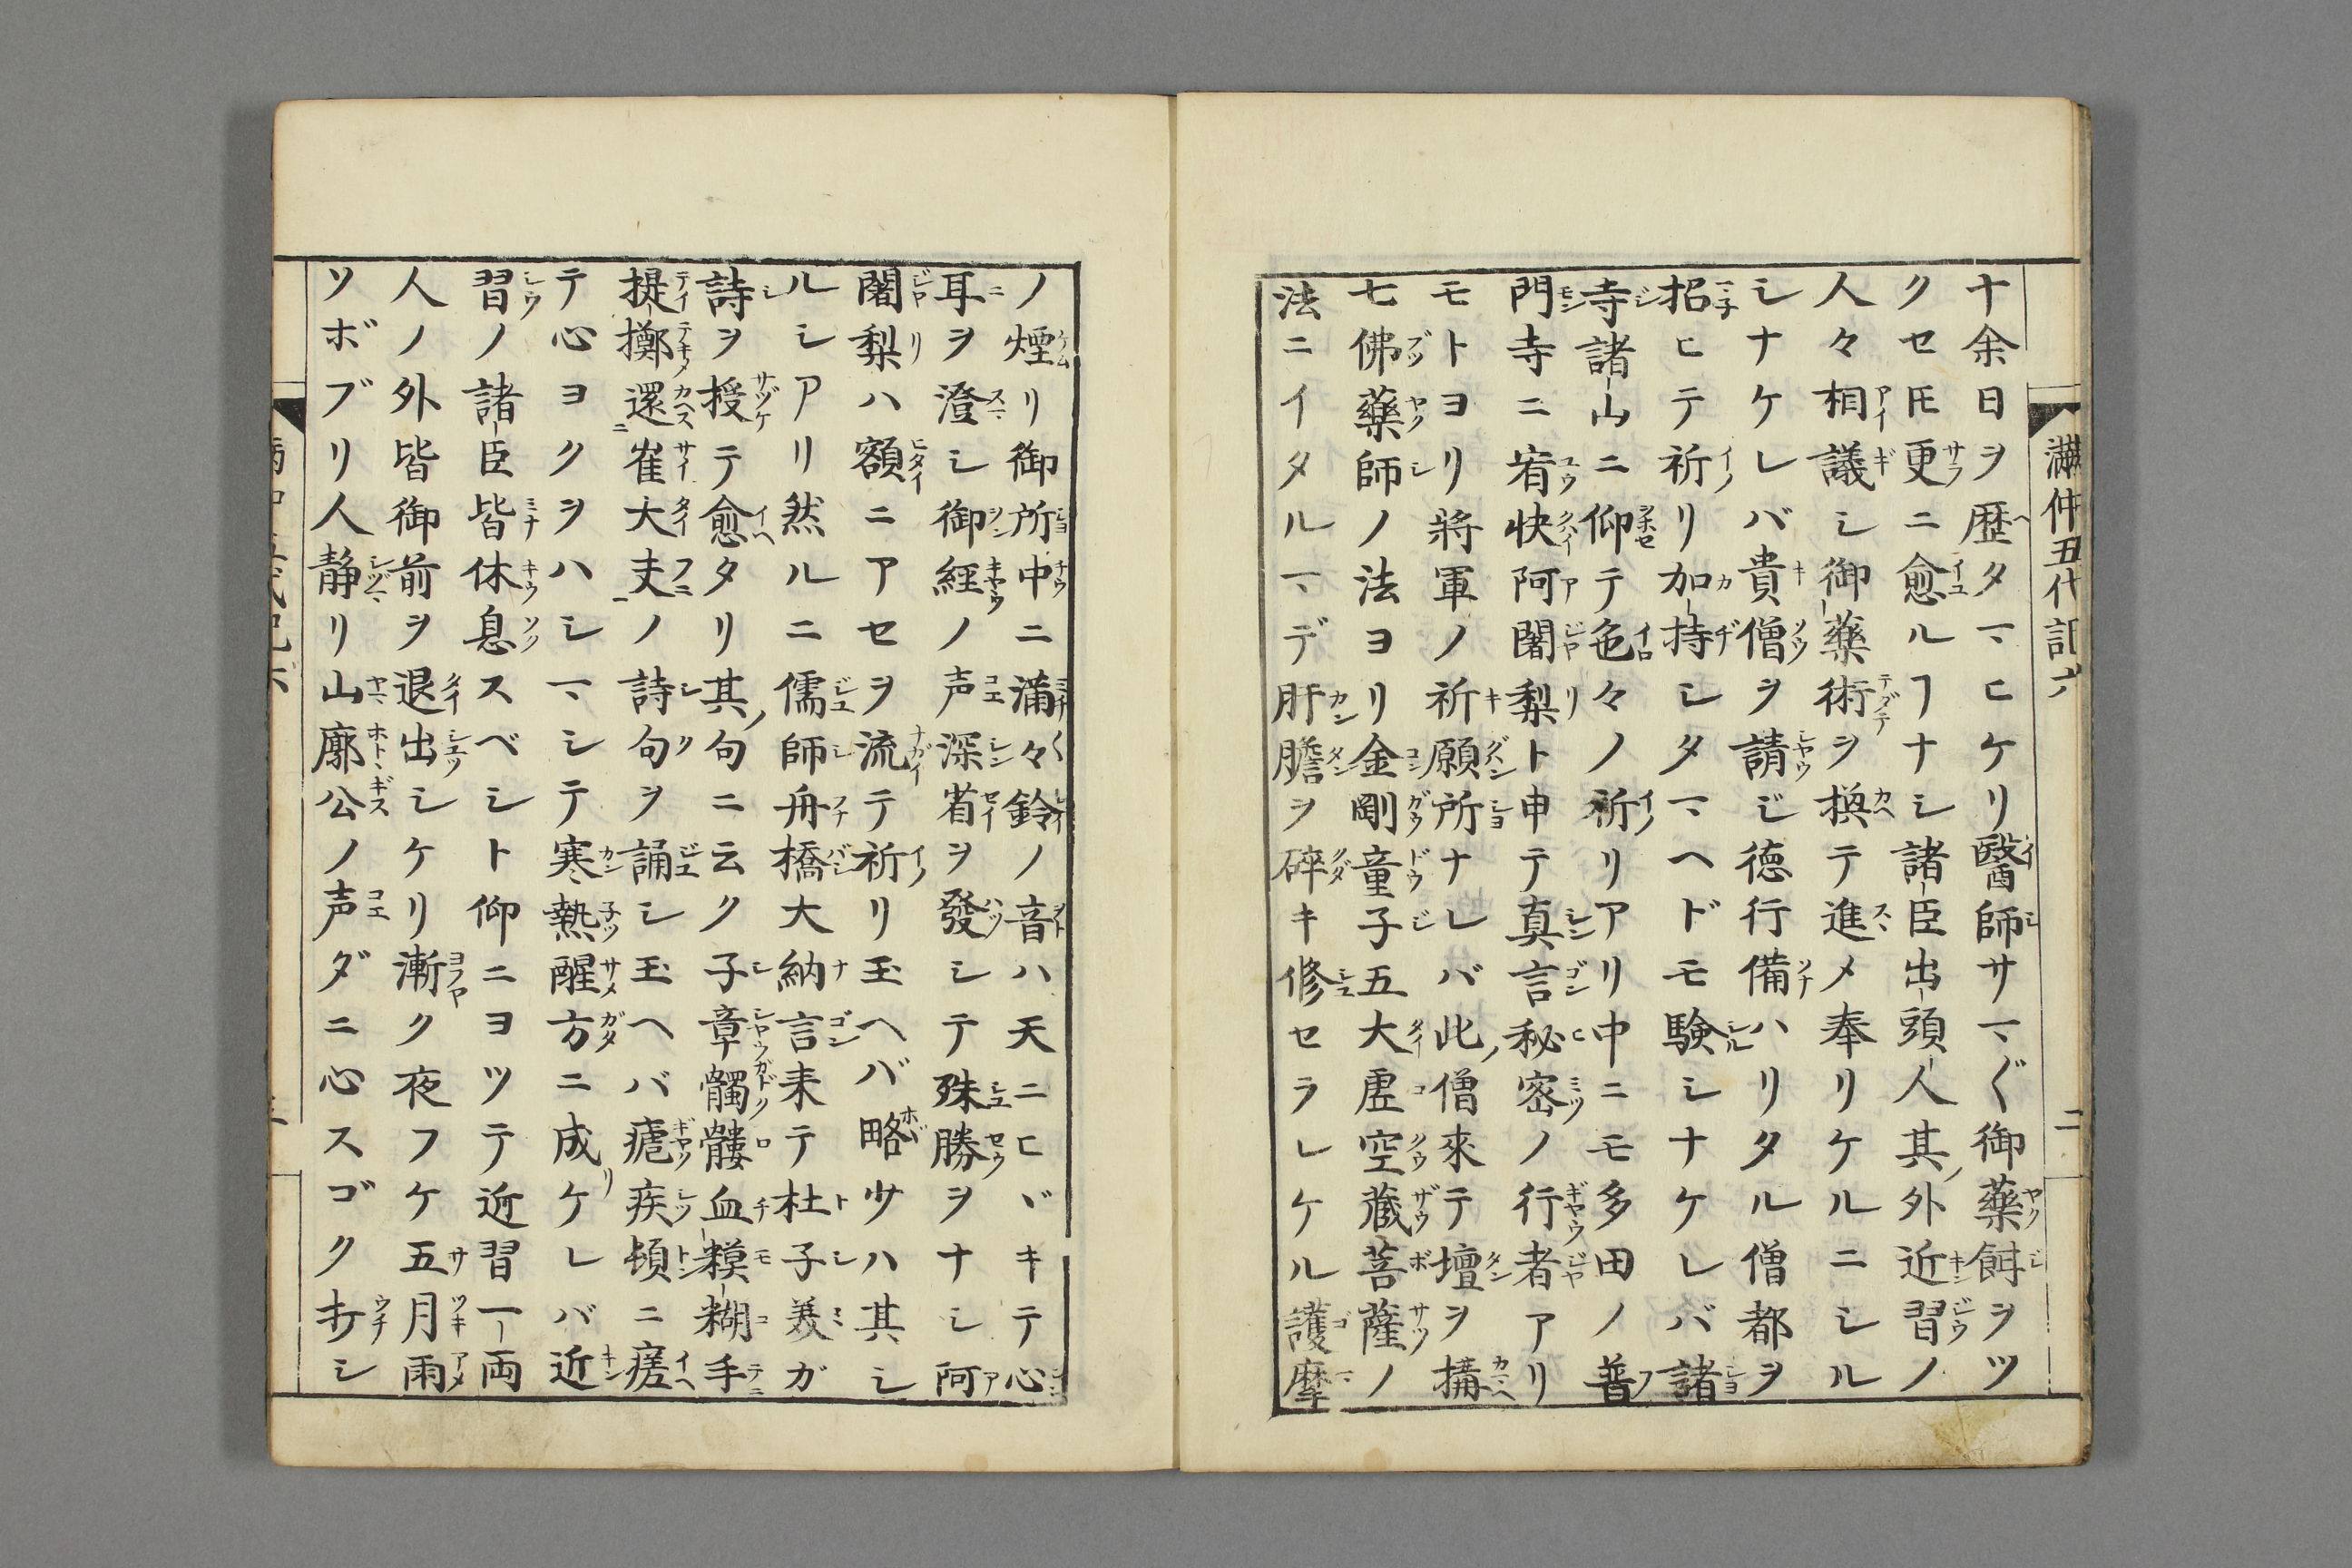 十余日ヲ歴タマヒケリ醫師サマ〲御藥餌ヲツ
クセ𪜈更ニ愈ルヿナシ諸臣出頭人其外近習ノ
人々相議シ御藥術ヲ換テ進メ奉リケルニシル
シナケレバ貴僧ヲ請ジ徳行備ハリタル僧都ヲ
招ヒテ祈リ加持シタマヘドモ験シナケレバ諸
寺諸山ニ仰テ色々ノ祈リアリ中ニモ多田ノ普
門寺ニ宥快阿闍梨ト申テ真言秘密ノ行者アリ
モトヨリ將軍ノ祈願所ナレバ此僧來テ壇ヲ搆
七佛藥師ノ法ヨリ金剛童子五大虚空蔵菩薩ノ
法ニイタルマデ肝膽ヲ碎キ修セラレケル護摩
滿仲五代記六
二
ノ煙リ御所中ニ滿々鈴ノ音ハ天ニヒヾキテ心
耳ヲ澄シ御經ノ声深省ヲ發シテ殊勝ヲナシ阿
闍梨ハ額ニアセヲ流テ祈リ玉ヘバ略少ハ其シ
ルシアリ然ルニ儒師舟橋大納言来テ杜子美ガ
詩ヲ授テ愈タリ其句ニ云ク子章髑髏血糢糊手
提擲還崔大夫ノ詩句ヲ誦シ玉ヘバ瘧疾頓ニ瘥
テ心ヨクヲハシマシテ寒熱醒方ニ成ケレバ近
習ノ諸臣皆休息スベシト仰ニヨツテ近習一両
人ノ外皆御前ヲ退出シケリ漸ク夜フケ五月雨
ソボブリ人静リ山廓公ノ声ダニ心スゴク打シ